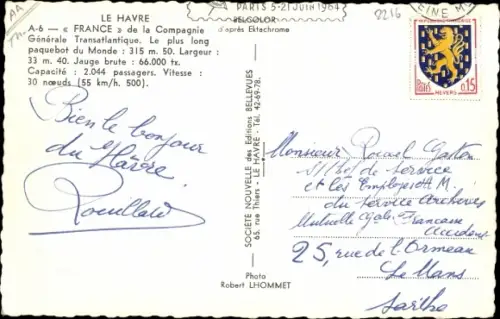 AA
LE HAVRE
A-6 — « FRANCE » de la Compagnie
Générale Transatlantique. Le plus long
paquebot du Monde : 315 m. 50. Largeur :
33 m. 40. Jauge brute : 66.000 tx.
Capacité : 2.044 passagers. Vitesse :
30 nœuds (55 km/h. 500).
PARIS 5-21 JUIN 1964
BELCOLOR
d'après Ektachrome
2216
SEINE
POSTES 0,15
NEVERS
Bien le bonjour
du Hâvre
SOCIÉTÉ NOUVELLE des Éditions BELLEVUES
65, rue Thiers - LE HAVRE - Tél. 42-69-78.
Photo
Robert LHOMMET
Monsieur Gaston
de service
et les Employés
du service Archives
Mutuelle Gale Française
Accidents
25, rue de l'Ormeau
Le Mans
Sarthe